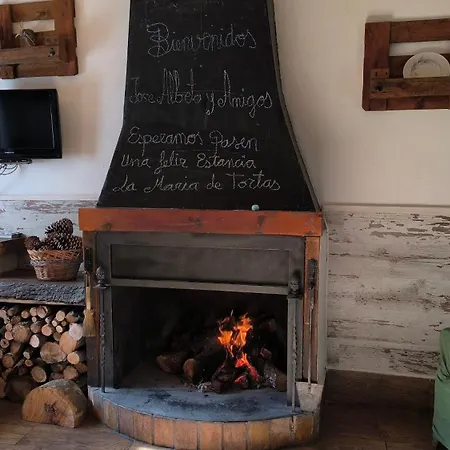 Bienvenidos
Jose Albeto y Amigos
Esperamos Pasen
Una feliz Estancia
La Maria de Tortas